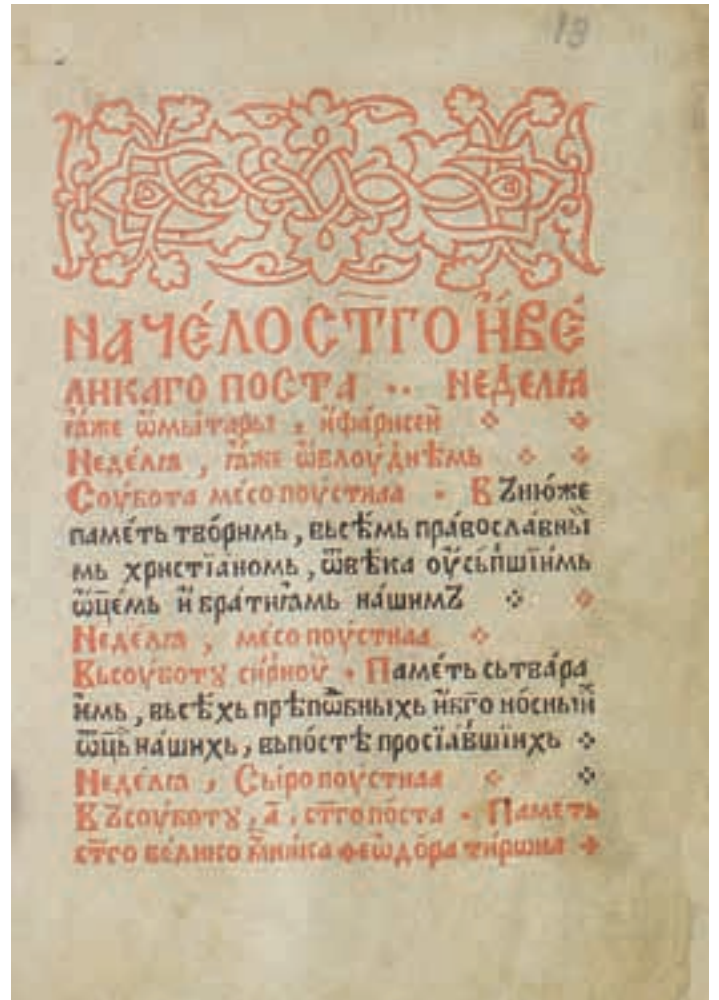 13
НАЧЕ́ЛО СТ҃ГО И҆ ВЕ
ЛИКАГО ПОСТА .. НЕДЕЛꙖ
ꙗ҆́же ѿмы́тарꙗ , и҆фа́рисеи
Неде́лꙗ , ꙗ҆́же ѿблоу́днѣмь
Соу́бота ме́сопоу́стнаа • Вꙁню́же
паме́ть тво́римь, вьсѣ́мь пра́вославны̏
мь христїаномь, ѿвѣ́ка оу҆сь́пшїимь
ѿ҆це́мь и҆ бра́тиꙗмь на́шимꙁ
Неде́лꙗ , ме́сопоу́стнаа
Вьсоу́ботꙋ си́рноу • Паме́ть сьтва́ра
имь, вьсѣ́хь прѣпѡ́бныхь и҆бг҃оно́сный
ѿц҃ь на́шихь, вьпо́стѣ просїꙗ́вшїихь
Неде́лꙗ , Сы́ропоу́стнаа
Вꙁсоу́ботꙋ , а҃ , ст҃гопо́ста • Паме́ть
ст҃го ве́лико м҃ни́ка феѡдо́ра ти́рѡна